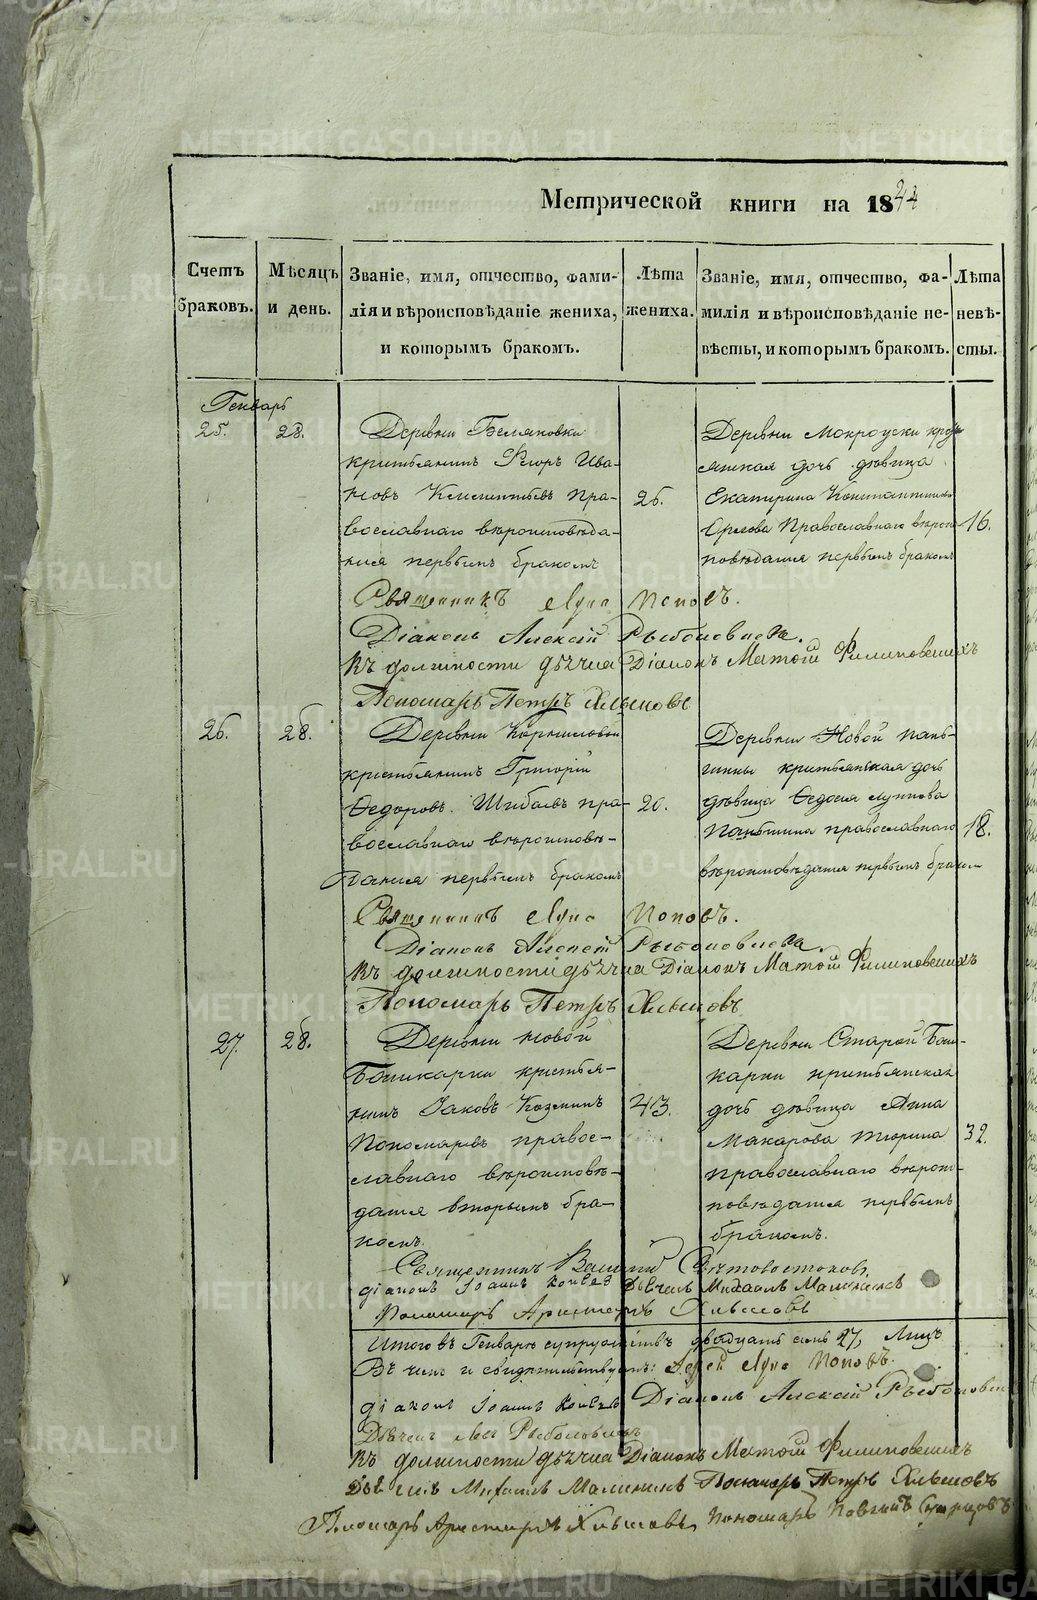 Метрической книги на 1844
Счетъ браковъ.
Мѣсяцъ и день.
Званіе, имя, отчество, фами-
лія и вѣроисповѣданіе жениха,
и которымъ бракомъ.
Лѣта жениха.
Званіе, имя, отчество, фа-
милія и вѣроисповѣданіе не-
вѣсты, и которымъ бракомъ.
Лѣта невѣ-
сты.
Генварь
25.
28.
Деревни Беляковки
крестьянинъ Егоръ Ива-
новъ Клементьевъ пра-
вославнаго вѣроисповѣда-
нія первымъ бракомъ
25.
Деревни Мокроуски крсть
янская дочь дѣвица
Екатерина Константинова
Орлова Православнаго вѣроис
повѣданія первымъ бракомъ
16.
Священникъ Попов.
Діаконъ Алексій Рыболовлевъ.
Въ должности дьячка Діаконъ Матѳій Филиповскихъ
Пономарь Петръ Хлыновъ
26.
28.
Деревни
крестьянинъ Григорій
Ѳедоровъ Шибаевъ пра-
вославнаго вѣроисповѣ-
данія первымъ бракомъ
20.
Деревни Новой Пань-
шины крестьянская дочь
дѣвица Ѳедосья Луппова
Паньшина православнаго
вѣроисповѣданія первымъ браком
18.
Священникъ Поповъ.
Діаконъ Алексѣй Рыболовлевъ.
Въ должности дьячка Діаконъ Матѳій Филиповскихъ
Пономарь Петръ Хлыновъ
27.
28.
Деревни Новой
Башкарки крестья-
нинъ Іаковъ Козминъ
Пономаревъ право-
славнаго вѣроисповѣ-
данія вторымъ бра-
комъ.
43.
Деревни Старой Баш-
карки крестьянская
дочь дѣвица Анна
Макарова Тюрина
православнаго вѣроис-
повѣданія первымъ
бракомъ.
32.
Священникъ Василій Свѣтовостоковъ
діаконъ Іоаннъ Дьячекъ Михаилъ Малининъ
Пономарь Аристархъ Хлыновъ
Итого въ Генварѣ супружествъ двадцать семь 27, Лицъ
Въ чемъ и свидѣтельствуемъ: Іерей Поповъ.
діаконъ Іоаннъ Діаконъ Алексій Рыболовлевъ
Дьячекъ Левъ Рыболовлевъ
Въ должности дьячка Діаконъ Матѳій Филиповскихъ
Дьячекъ Михаилъ Малининъ Пономарь Петръ Хлыновъ
Пономарь Аристархъ Хлыновъ, Пономарь
METRIKI.GASO-URAL.RU